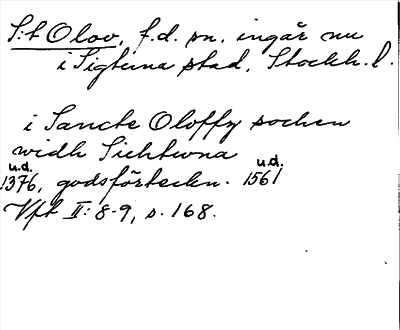 S:t Olov, f.d. sn. ingår nu
i Sigtuna stad, Stockh. l.
i Sancte Oloffz sochen
widh Sichtwna
u.d. u.d.
1376, godsförteckn. 1561
Vft II: 8-9, s. 168.